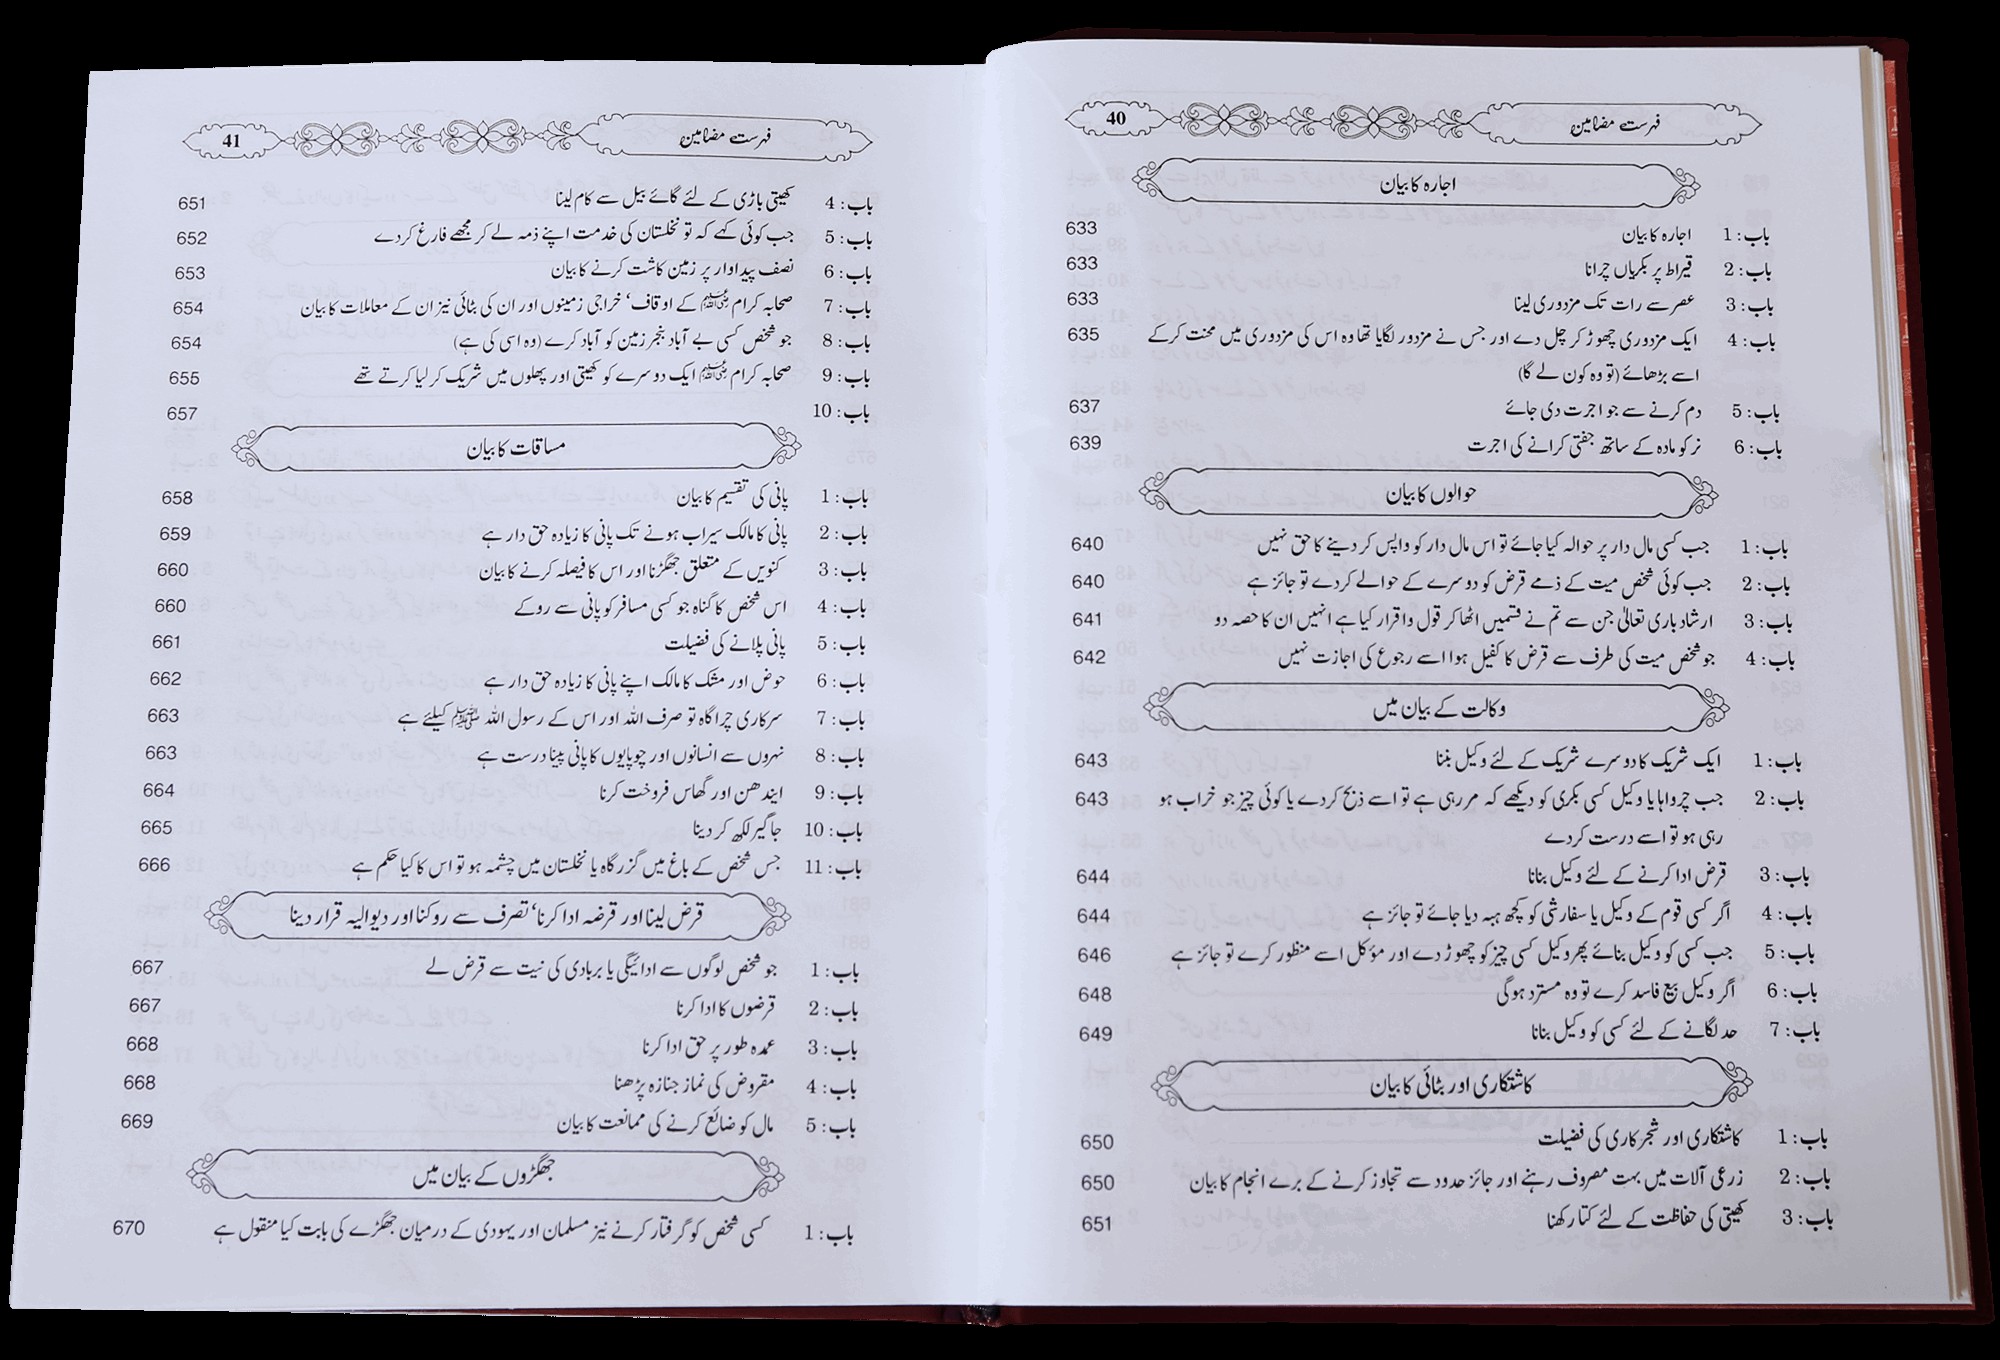 فہرست مضامین 40
اجارہ کا بیان
باب: 1 اجارہ کا بیان 633
باب: 2 قیراط پر بکریاں چرانا 633
باب: 3 عصر سے رات تک مزدوری لینا 633
باب: 4 ایک مزدوری چھوڑ کر چل دے اور جس نے مزدور لگایا تھا وہ اس کی مزدوری میں محنت کر کے 635
اسے بڑھائے (تو وہ کون لے گا)
باب: 5 دم کرنے سے جو اجرت دی جائے 637
باب: 6 نر کو مادہ کے ساتھ جفتی کرانے کی اجرت 639
حوالوں کا بیان
باب: 1 جب کسی مال دار پر حوالہ کیا جائے تو اس مال دار کو واپس کر دینے کا حق نہیں 640
باب: 2 جب کوئی شخص میت کے ذمے قرض کو دوسرے کے حوالے کردے تو جائز ہے 640
باب: 3 ارشاد باری تعالیٰ جن سے تم نے قسمیں اٹھا کر قول و اقرار کیا ہے انہیں ان کا حصہ دو 641
باب: 4 جو شخص میت کی طرف سے قرض کا کفیل ہوا اسے رجوع کی اجازت نہیں 642
وکالت کے بیان میں
باب: 1 ایک شریک کا دوسرے شریک کے لئے وکیل بننا 643
باب: 2 جب چرواہا یا وکیل کسی بکری کو دیکھے کہ مر رہی ہے تو اسے ذبح کردے یا کوئی چیز جو خراب ہو 643
رہی ہو تو اسے درست کردے
باب: 3 قرض ادا کرنے کے لئے وکیل بنانا 644
باب: 4 اگر کسی قوم کے وکیل یا سفارشی کو کچھ ہبہ دیا جائے تو جائز ہے 644
باب: 5 جب کسی کو وکیل بنائے پھر وکیل کسی چیز کو چھوڑ دے اور مؤکل اسے منظور کرے تو جائز ہے 646
باب: 6 اگر وکیل بیع فاسد کرے تو وہ مسترد ہوگی 648
باب: 7 حد لگانے کے لئے کسی کو وکیل بنانا 649
کاشتکاری اور بٹائی کا بیان
باب: 1 کاشتکاری اور شجر کاری کی فضیلت 650
باب: 2 زرعی آلات میں بہت مصروف رہنے اور جائز حدود سے تجاوز کرنے کے برے انجام کا بیان 650
باب: 3 کھیتی کی حفاظت کے لئے کتا رکھنا 651
فہرست مضامین 41
باب: 4 کھیتی باڑی کے لئے گائے بیل سے کام لینا 651
باب: 5 جب کوئی کہے کہ تو نخلستان کی خدمت اپنے ذمہ لے کر مجھے فارغ کردے 652
باب: 6 نصف پیداوار پر زمین کاشت کرنے کا بیان 653
باب: 7 صحابہ کرام کے اوقاف‘ خراجی زمینوں اور ان کی بٹائی نیز ان کے معاملات کا بیان 654
باب: 8 جو شخص کسی بے آباد بنجر زمین کو آباد کرے (وہ اسی کی ہے) 654
باب: 9 صحابہ کرام ایک دوسرے کو کھیتی اور پھلوں میں شریک کر لیا کرتے تھے 655
باب: 10 657
مساقات کا بیان
باب: 1 پانی کی تقسیم کا بیان 658
باب: 2 پانی کا مالک سیراب ہونے تک پانی کا زیادہ حق دار ہے 659
باب: 3 کنویں کے متعلق جھگڑنا اور اس کا فیصلہ کرنے کا بیان 660
باب: 4 اس شخص کا گناہ جو کسی مسافر کو پانی سے روکے 660
باب: 5 پانی پلانے کی فضیلت 661
باب: 6 حوض اور مشک کا مالک اپنے پانی کا زیادہ حق دار ہے 662
باب: 7 سرکاری چراگاہ تو صرف اللہ اور اس کے رسول اللہ ﷺ کیلئے ہے 663
باب: 8 نہروں سے انسانوں اور چوپایوں کا پانی پینا درست ہے 663
باب: 9 ایندھن اور گھاس فروخت کرنا 664
باب: 10 جاگیر لکھ کر دینا 665
باب: 11 جس شخص کے باغ میں گزر گاہ یا نخلستان میں چشمہ ہو تو اس کا کیا حکم ہے 666
قرض لینا اور قرضہ ادا کرنا‘ تصرف سے روکنا اور دیوالیہ قرار دینا
باب: 1 جو شخص لوگوں سے ادائیگی یا بربادی کی نیت سے قرض لے 667
باب: 2 قرضوں کا ادا کرنا 667
باب: 3 عمدہ طور پر حق ادا کرنا 668
باب: 4 مقروض کی نماز جنازہ پڑھنا 668
باب: 5 مال کو ضائع کرنے کی ممانعت کا بیان 669
جھگڑوں کے بیان میں
باب: 1 کسی شخص کو گرفتار کرنے نیز مسلمان اور یہودی کے درمیان جھگڑے کی بابت کیا منقول ہے 670